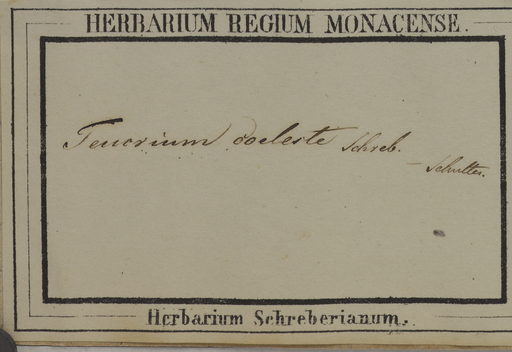 HERBARIUM REGIUM MONACENSE.
Teucrium coeleste Schreb.
– Schultes.
Herbarium Schreberianum.